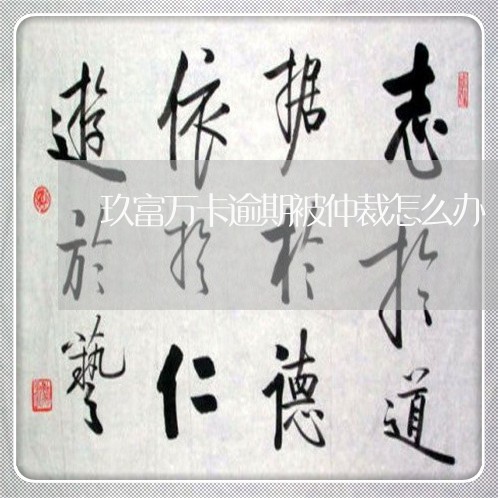 志於道
据於德
依於仁
遊於藝
玖富万卡逾期被仲裁怎么办